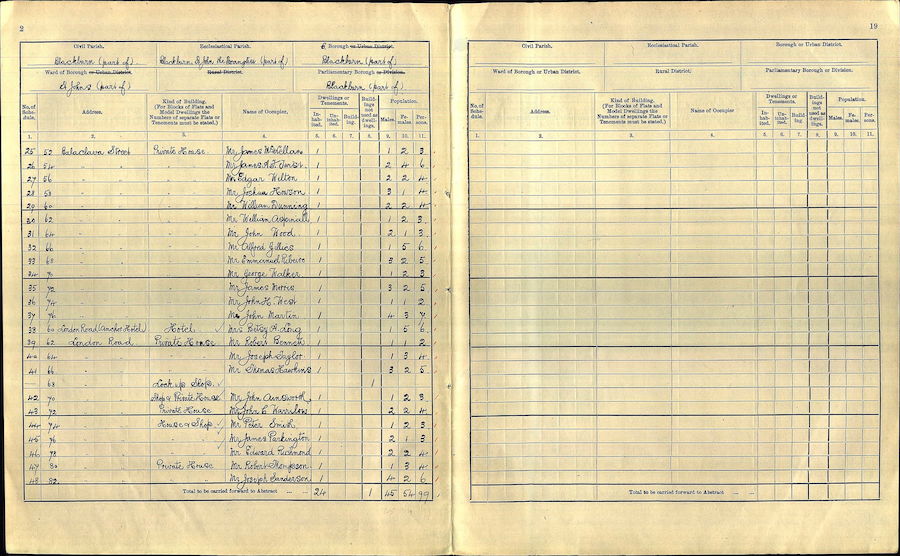 2
Civil Parish.
Ecclesiastical Parish.
6 Borough or Urban District.
Blackburn (part of)
Blackburn St John the Evangelist (part of)
Blackburn (part of)
Ward of Borough or Urban District.
Rural District.
Parliamentary Borough or Division.
St John's (part of)
Blackburn (part of)
No. of Schedule.
Address.
Kind of Building. (For Blocks of Flats and Model Dwellings the Numbers of separate Flats or Tenements must be stated.)
Name of Occupier.
Dwellings or Tenements.
Inhabited.
Uninhabited.
Building.
Buildings not used as dwellings.
Population.
Males.
Females.
Persons.
1. 2. 3. 4. 5. 6. 7. 8. 9. 10. 11.
25 52 Balaclava Street Private House Mr James McWilliam 1 1 2 3
26 54 " " " Mr James A. 1 2 4 6
27 56 " " " Edgar Wilton 1 2 2 4
28 58 " " " Mr Joshua Howson 1 3 1 4
29 60 " " " Mr William Dunning 1 2 2 4
30 62 " " " Mr William Aspinall 1 1 2 3
31 64 " " " Mr John Wood 1 2 1 3
32 66 " " " Mr Alfred Gillies 1 1 5 6
33 68 " " " Mr Emmanuel 1 3 2 5
34 70 " " " Mr George Walker 1 1 2 3
35 72 " " " Mr James Morris 1 3 2 5
36 74 " " " Mr John H. West 1 1 1 2
37 76 " " " John Martin 1 4 3 7
38 60 London Road (Anchor Hotel) Hotel Mrs Betsy A. Long 1 1 5 6
39 62 London Road Private House Mr Robert Bennett 1 1 1 2
40 64 " " " Mr Joseph Taylor 1 1 3 4
41 66 " " " Mr Thomas Hawkins 1 3 2 5
— 68 " Lock up Shop 1
42 70 " Shop & Private House Mr John Ainsworth 1 1 2 3
43 72 " Private House Mr John E. 1 2 2 4
44 74 " House & Shop Mr Peter Smith 1 1 2 3
45 76 " " Mr James Parkington 1 2 1 3
46 78 " " Mr Edward Richmond 1 2 2 4
47 80 " Private House Mr Robert Thompson 1 1 3 4
48 82 " " Mr Joseph Sanderson 1 4 2 6
Total to be carried forward to Abstract 24 1 45 54 99
19
Civil Parish.
Ecclesiastical Parish.
Borough or Urban District.
Ward of Borough or Urban District.
Rural District.
Parliamentary Borough or Division.
No. of Schedule.
Address.
Kind of Building. (For Blocks of Flats and Model Dwellings the Numbers of separate Flats or Tenements must be stated.)
Name of Occupier
Dwellings or Tenements.
Inhabited.
Uninhabited.
Building.
Buildings not used as dwellings.
Population.
Males.
Females.
Persons.
1. 2. 3. 4. 5. 6. 7. 8. 9. 10. 11.
Total to be carried forward to Abstract